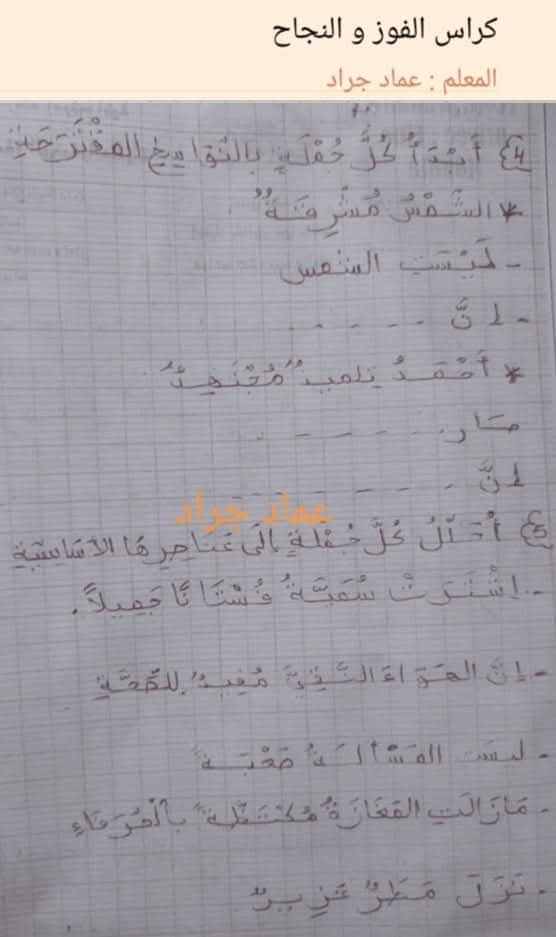 كراس الفوز و النجاح
المعلم : عماد جراد
4} أَبْدَأُ كُلَّ جُمْلَةٍ بِالنَّوَاسِخِ المُقْتَرَحَةِ
* الشَّمْسُ مُشْرِقَةٌ
- لَيْسَتِ الشمس
- إِنَّ - - - - -
* أَحْمَدُ تِلميذٌ مُجْتَهِدٌ
صَار - - - - -
إِنَّ - - - - -
عماد جراد
5} أُحَلِّلُ كُلَّ جُمْلَةٍ إِلَى عَنَاصِرِهَا الأَسَاسِيَّةِ
- اِشْتَرَتْ سُمَيَّةُ فُسْتَانًا جَمِيلاً.
- إِنَّ الهَوَاءَ النَّقِيَّ مُفِيدٌ لِلصِّحَّةِ
- ليسَت المَسْأَلَةُ صَعْبَةً
- مَازَالَتِ المَغَازَةُ مُكْتَظَّةً بِالْحُرَفَاءِ
- نَزَلَ مَطَرٌ غَزِيرٌ